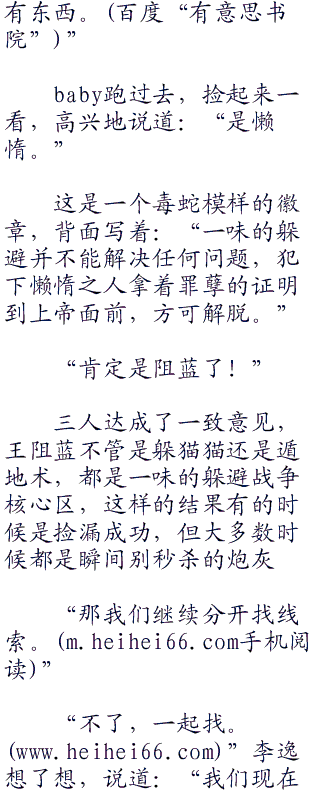 有东西。(百度“有意思书
院”)”
baby跑过去，捡起来一
看，高兴地说道：“是懒
惰。”
这是一个毒蛇模样的徽
章，背面写着：“一味的躲
避并不能解决任何问题，犯
下懒惰之人拿着罪孽的证明
到上帝面前，方可解脱。”
“肯定是阻蓝了！”
三人达成了一致意见，
王阻蓝不管是躲猫猫还是遁
地术，都是一味的躲避战争
核心区，这样的结果有的时
候是捡漏成功，但大多数时
候都是瞬间别秒杀的炮灰
“那我们继续分开找线
索。(m.heihei66.com手机阅
读)”
“不了，一起找。
(www.heihei66.com)”李逸
想了想，说道：“我们现在